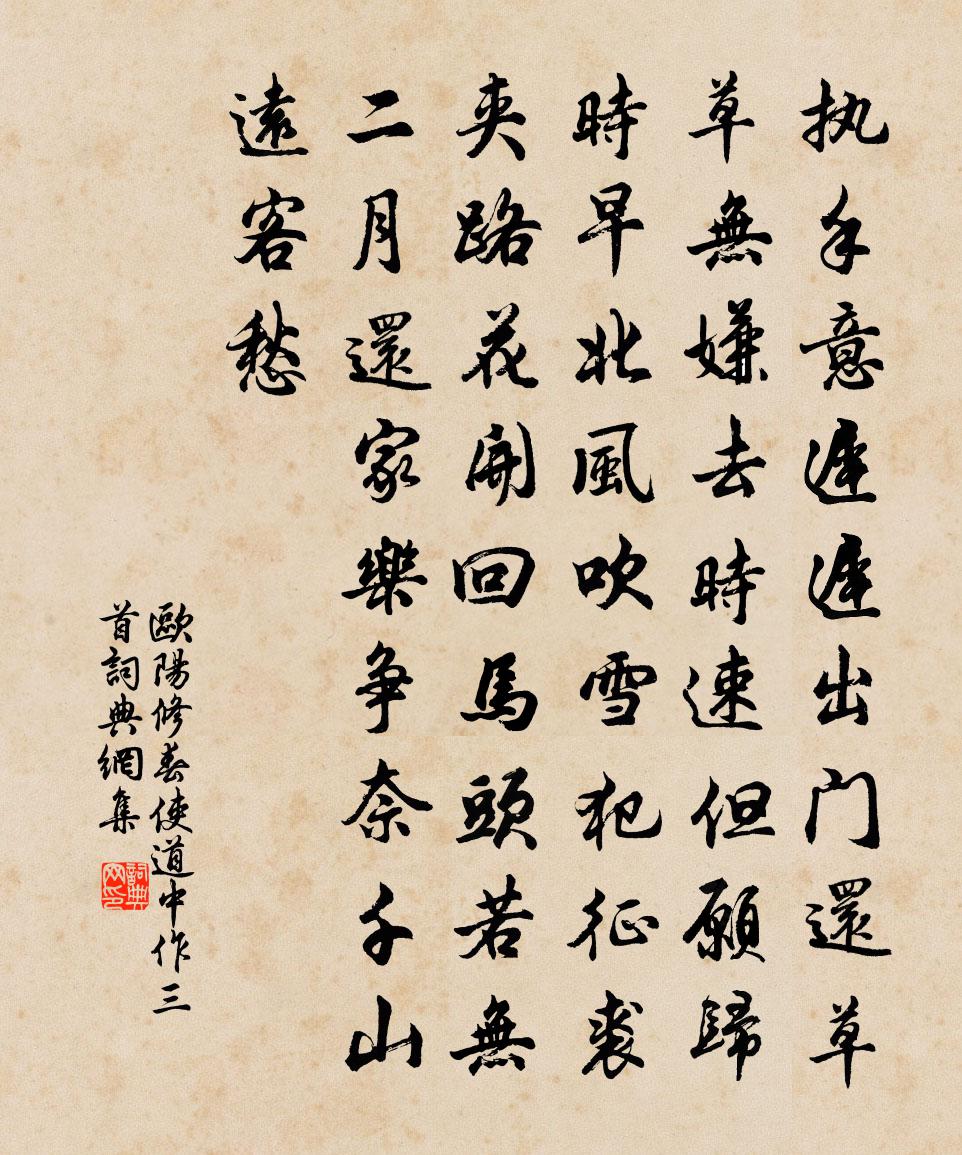 执手意遲遲出门還草
草無嫌去時速但願歸
時早北風吹雪犯征裘
夾路花開回馬頭若無
二月還家樂争奈千山
遠客愁
歐陽修春使道中作三
首詞典網集
詞典网印